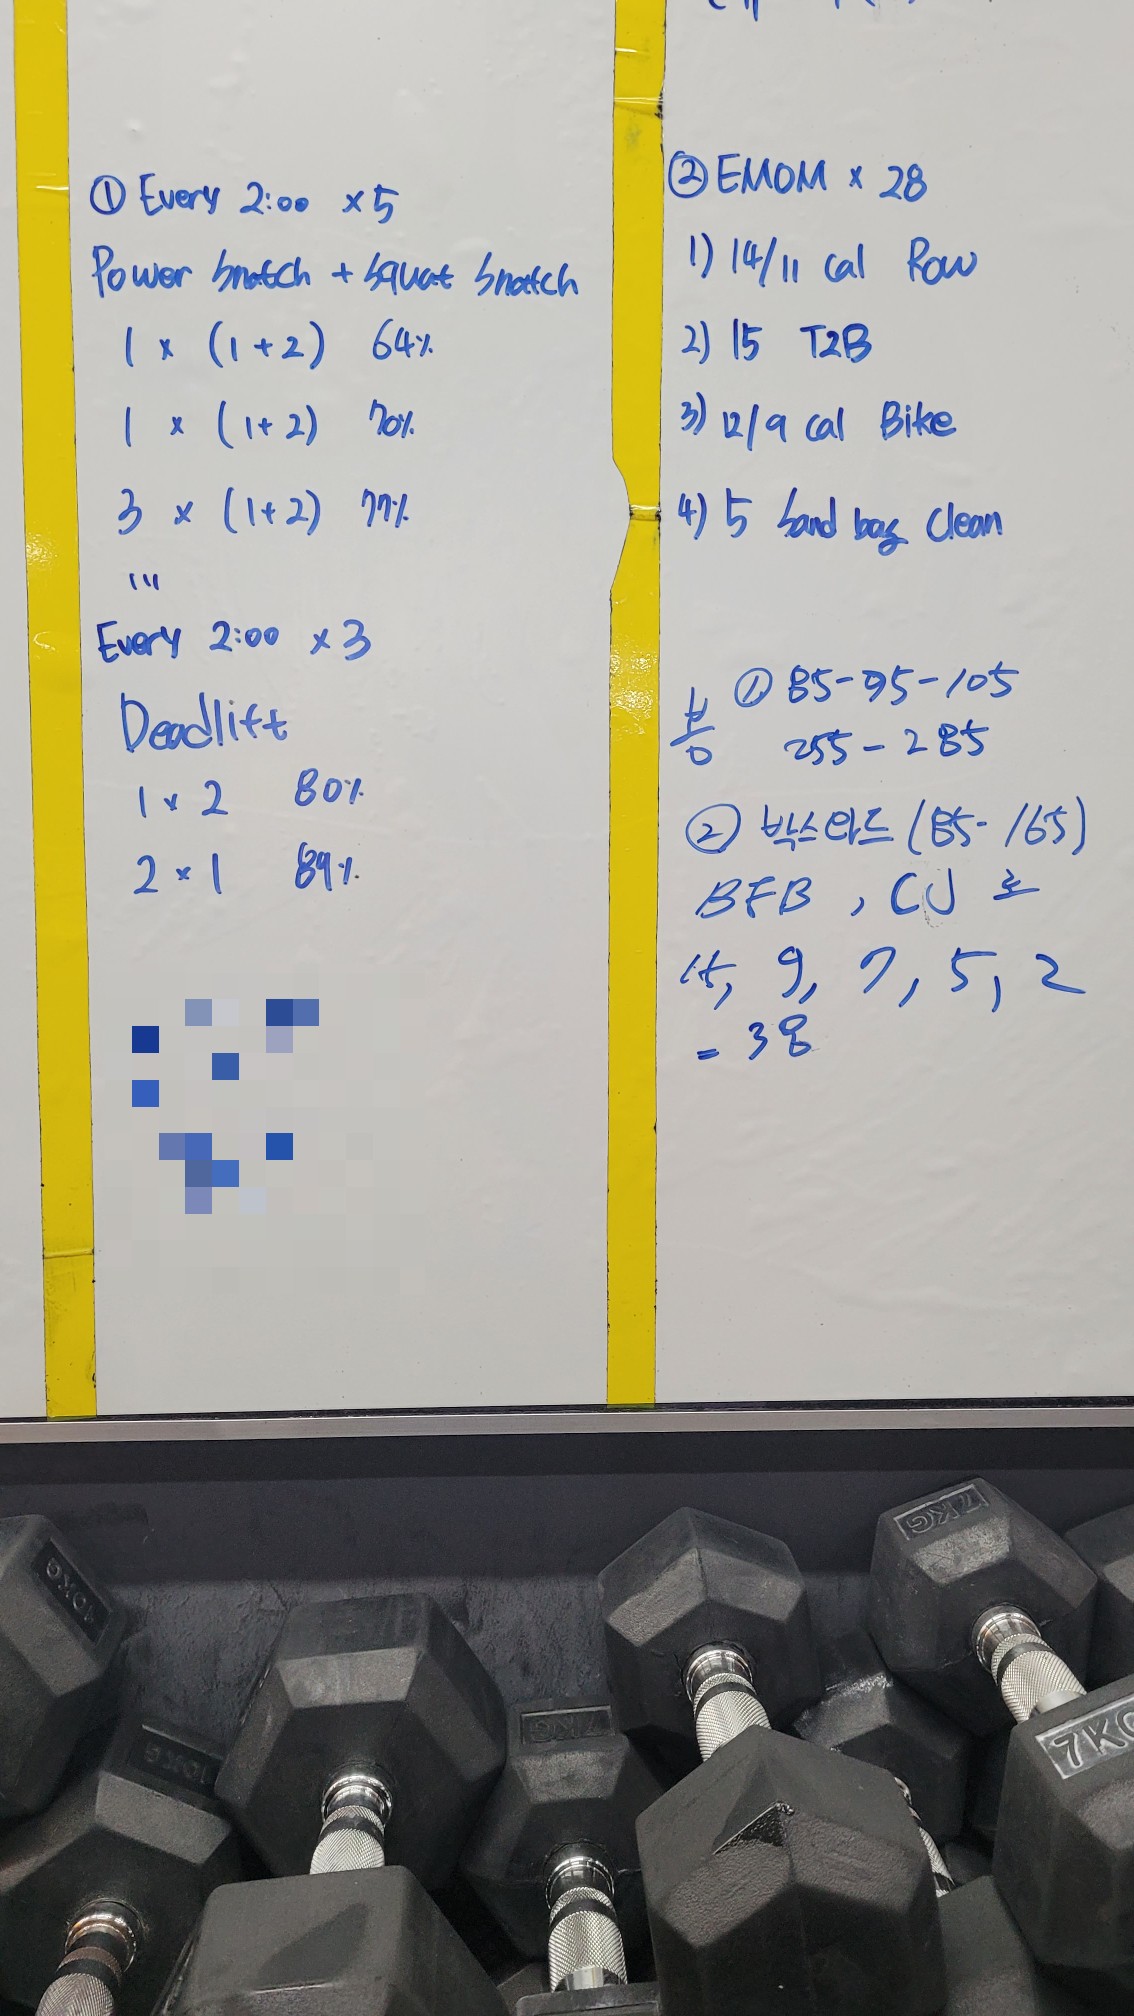 ① Every 2:00 x5
Power Snatch + Squat Snatch
1 x (1+2) 64%
1 x (1+2) 70%
3 x (1+2) 77%
Every 2:00 x3
Deadlift
1 x 2 80%
2 x 1 89%
② EMOM x 28
1) 14/11 cal Row
2) 15 T2B
3) 12/9 cal Bike
4) 5 Sand bag Clean
① 85-95-105
255-285
② 박스 타드 (85-165)
BFB, CJ 로
15, 9, 7, 5, 2
= 38
10KG
10KG
7KG
7KG
7KG